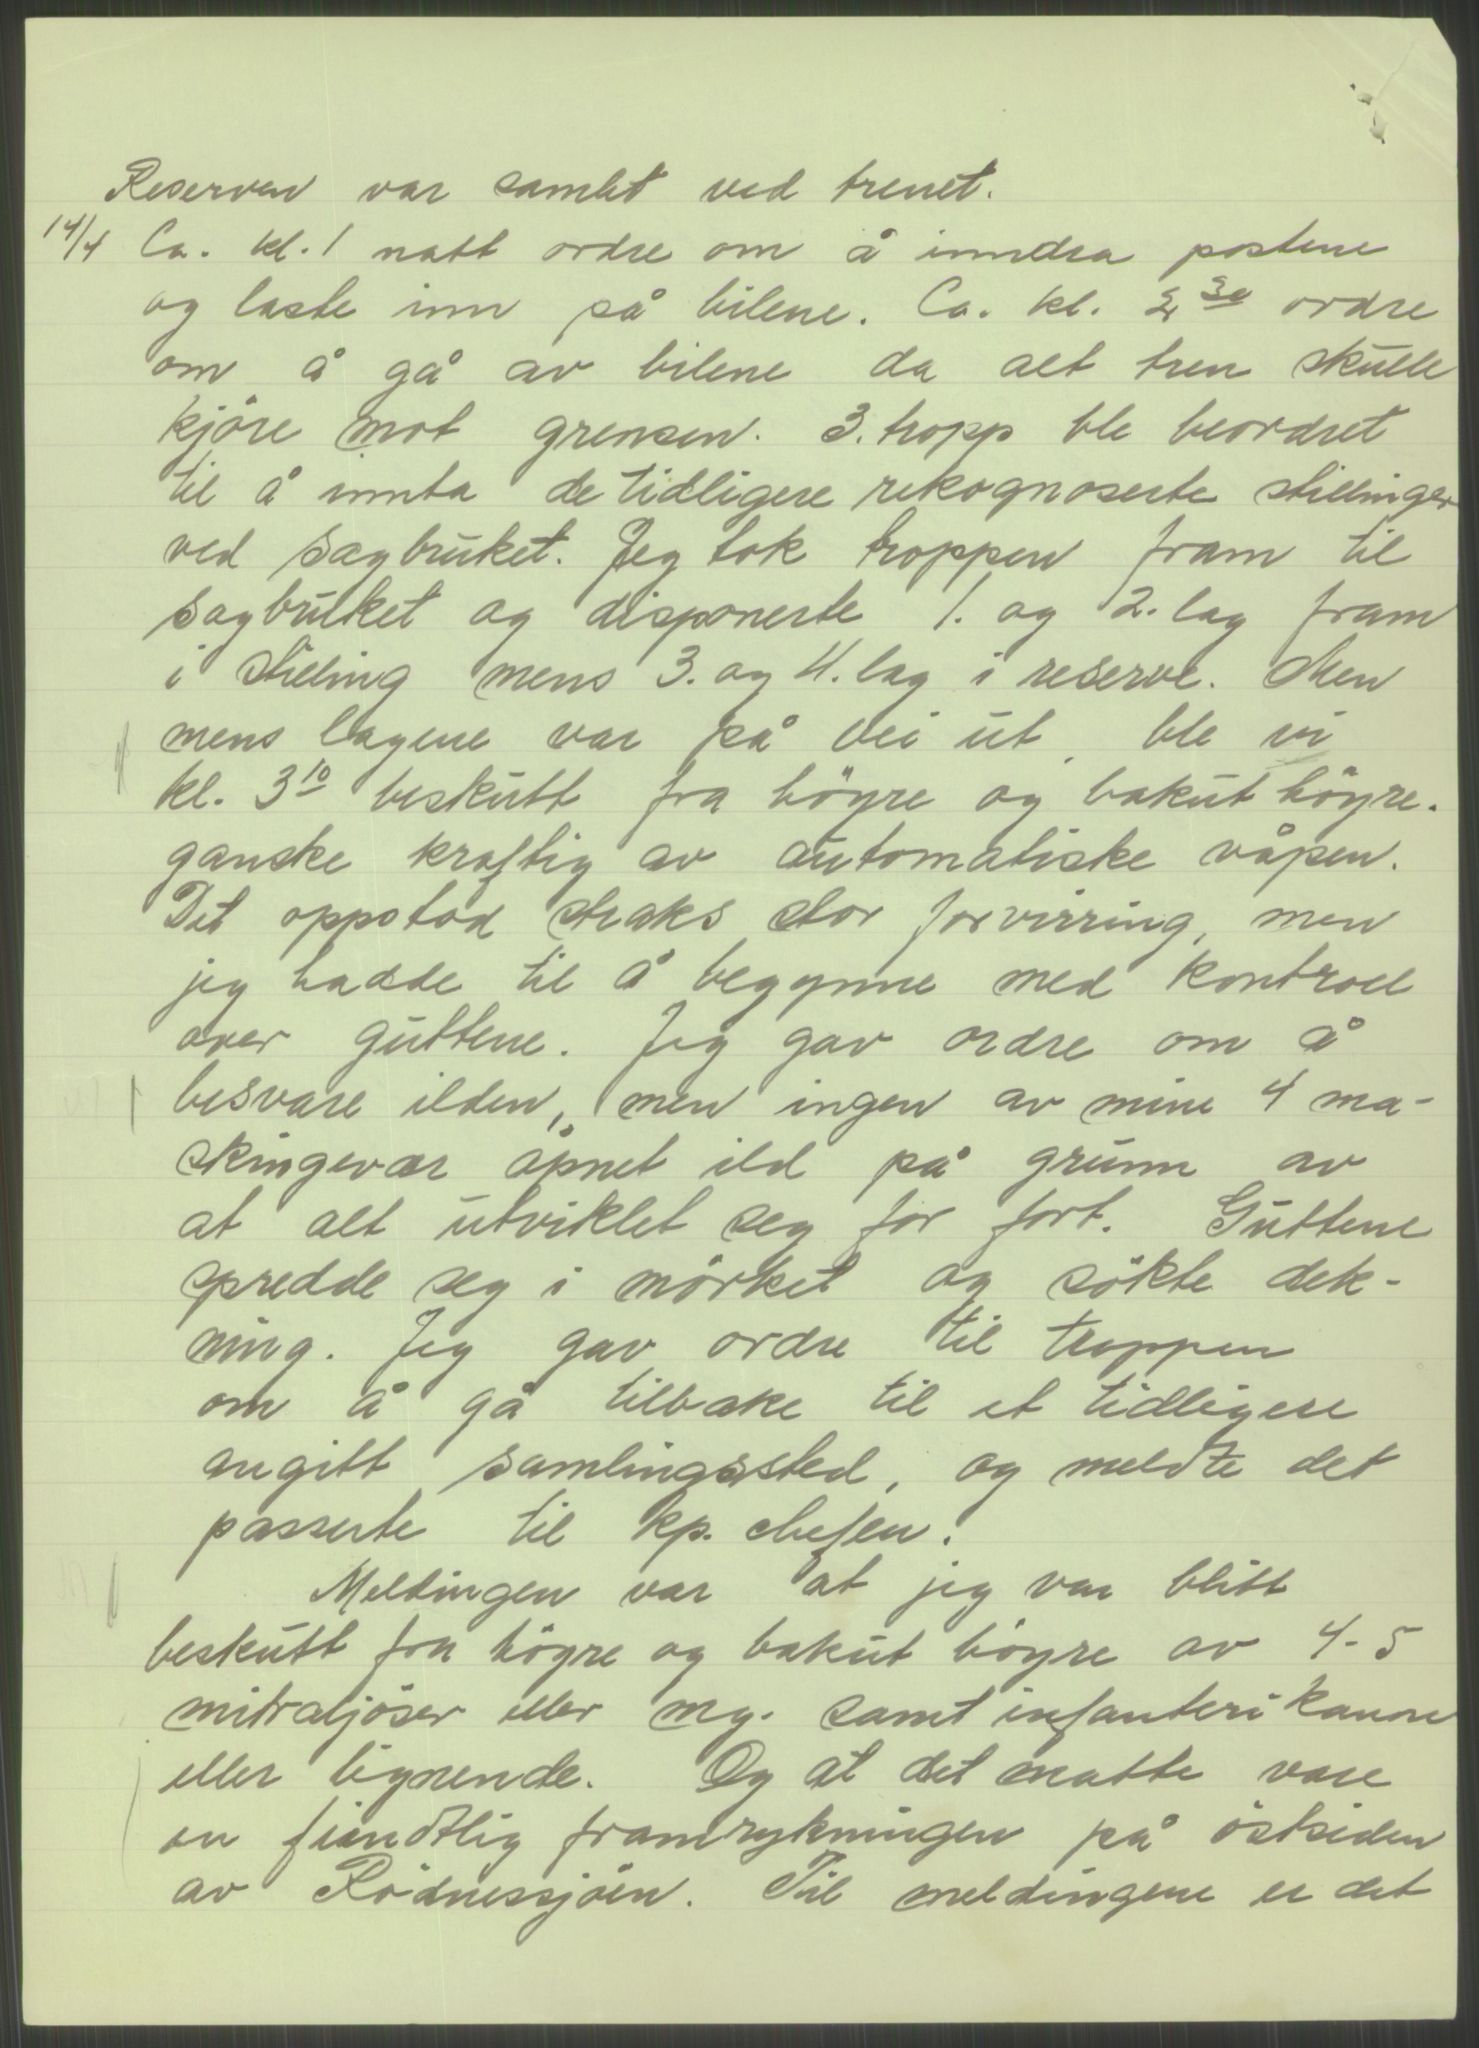 Reserven var samlet ved trenet.
14/4 Ca. kl. 1 natt ordre om å inndra postene
og laste inn på bilene. Ca. kl. 2 30 ordre
om å gå av bilene da alt tren skulle
kjöre mot grensen. 3. tropp ble beordret
til å innta de tidligere rekognoserte stillinger
ved sagbruket. Jeg tok troppen fram til
sagbruket og disponerte 1. og 2. lag fram
i stilling mens 3. og 4. lag i reserve. Men
mens lagene var på vei ut, ble vi
kl. 3 10 beskutt fra höyre og bakut höyre.
ganske kraftig av automatiske våpen.
Det oppstod straks stor forvirring, men
jeg hadde til å begynne med kontroll
over guttene. Jeg gav ordre om å
besvare ilden, men ingen av mine 4 ma-
skingevær åpnet ild på grunn av
at alt utviklet seg for fort. Guttene
spredde seg i mörket og sökte dek-
ning. Jeg gav ordre til troppen
om å gå tilbake til et tidligere
angitt samlingssted, og meldte det
passerte til kp. chefen.
Meldingen var at jeg var blitt
beskutt fra högre og bakut höyre av 4-5
mitraljöser eller mg. samt infanterikanon
eller lignende. Og at det måtte være
en fiendtlig framrykningen på östsiden
av Rödnessjöen. Til meldingene er det